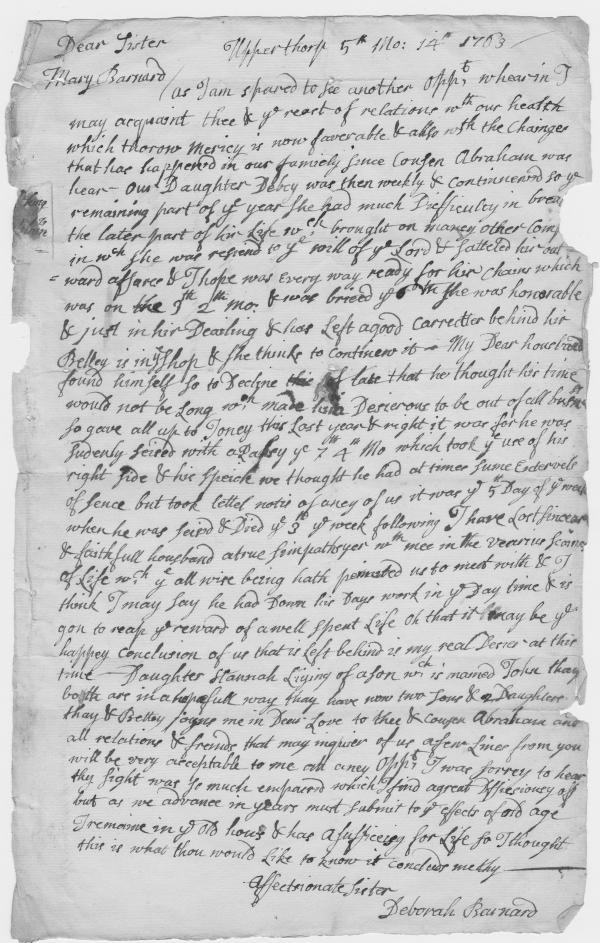 Dear Sister Upperthorp 5th Mo: 14th 1763
Mary Barnard
as I am spared to see another Oppt. whearin I
may acquaint thee & ye reast of relations wth our health
which thorow Mercy is now faverable & also wth the Chainges
that has happened in our famiely since Cousen Abraham was
hear - Our Daughter Debey was then weekly & continnewd so ye
remaining part of ye year she had much Difficulty in
the later part of hir Life wch brought on maney other Com
in wch she was resined to ye will of ye Lord & satteled hir out
= ward affares & I hope was every way ready for hir Chains which
was on the 9th 2th Mo. & was bried ye she was honorable
& just in hir Dealing & has Left a good Carrectter behind hir
Belley is in ye Shop & she thinks to continew it - My Dear housband
found himself so to Decline of late that he thought his time
would not be Long wch made him Desierous to be out of all
so gave all up to Toney this Last year & right it was for he was
sudenly seised with a Palsy ye 7th 4th Mo which took ye use of his
right side & his speich we thought he had at times sume
of sence but took lettel notis of aney of us it was ye 5th Day of ye week
when he was seisd & Died ye 5th ye week following I have Lost a
& faithfull housband a true simpathyer wth mee in the vearius
of Life wch ye all wise being hath permited us to meet with & I
think I may say he had Down his Days work in ye Day time & is
gon to reap ye reward of a well spent Life Oh that it may be ye
happey Conclusion of us that is Left behind is my real Desier at this
time - Daughter Hannah Liying of a son wch is named John thay
both are in a hopefull way thay have now two sons & 2 Daughters
thay & Belley joyns me in Dear Love to thee & Cousen Abraham and
all relations & frends that may inquier of us a few Lines from you
will be very acceptable to me att aney Oppt. I was sorrey to hear
thy sight was so much empared which I find a great
but as we advance in years must submit to ye effects of old age
I remaine in ye old hous & has a sufficesey for Life so I thought
this is what thou would Like to know is Concluds me thy
Affectsionate Sister
Deborah Barnard